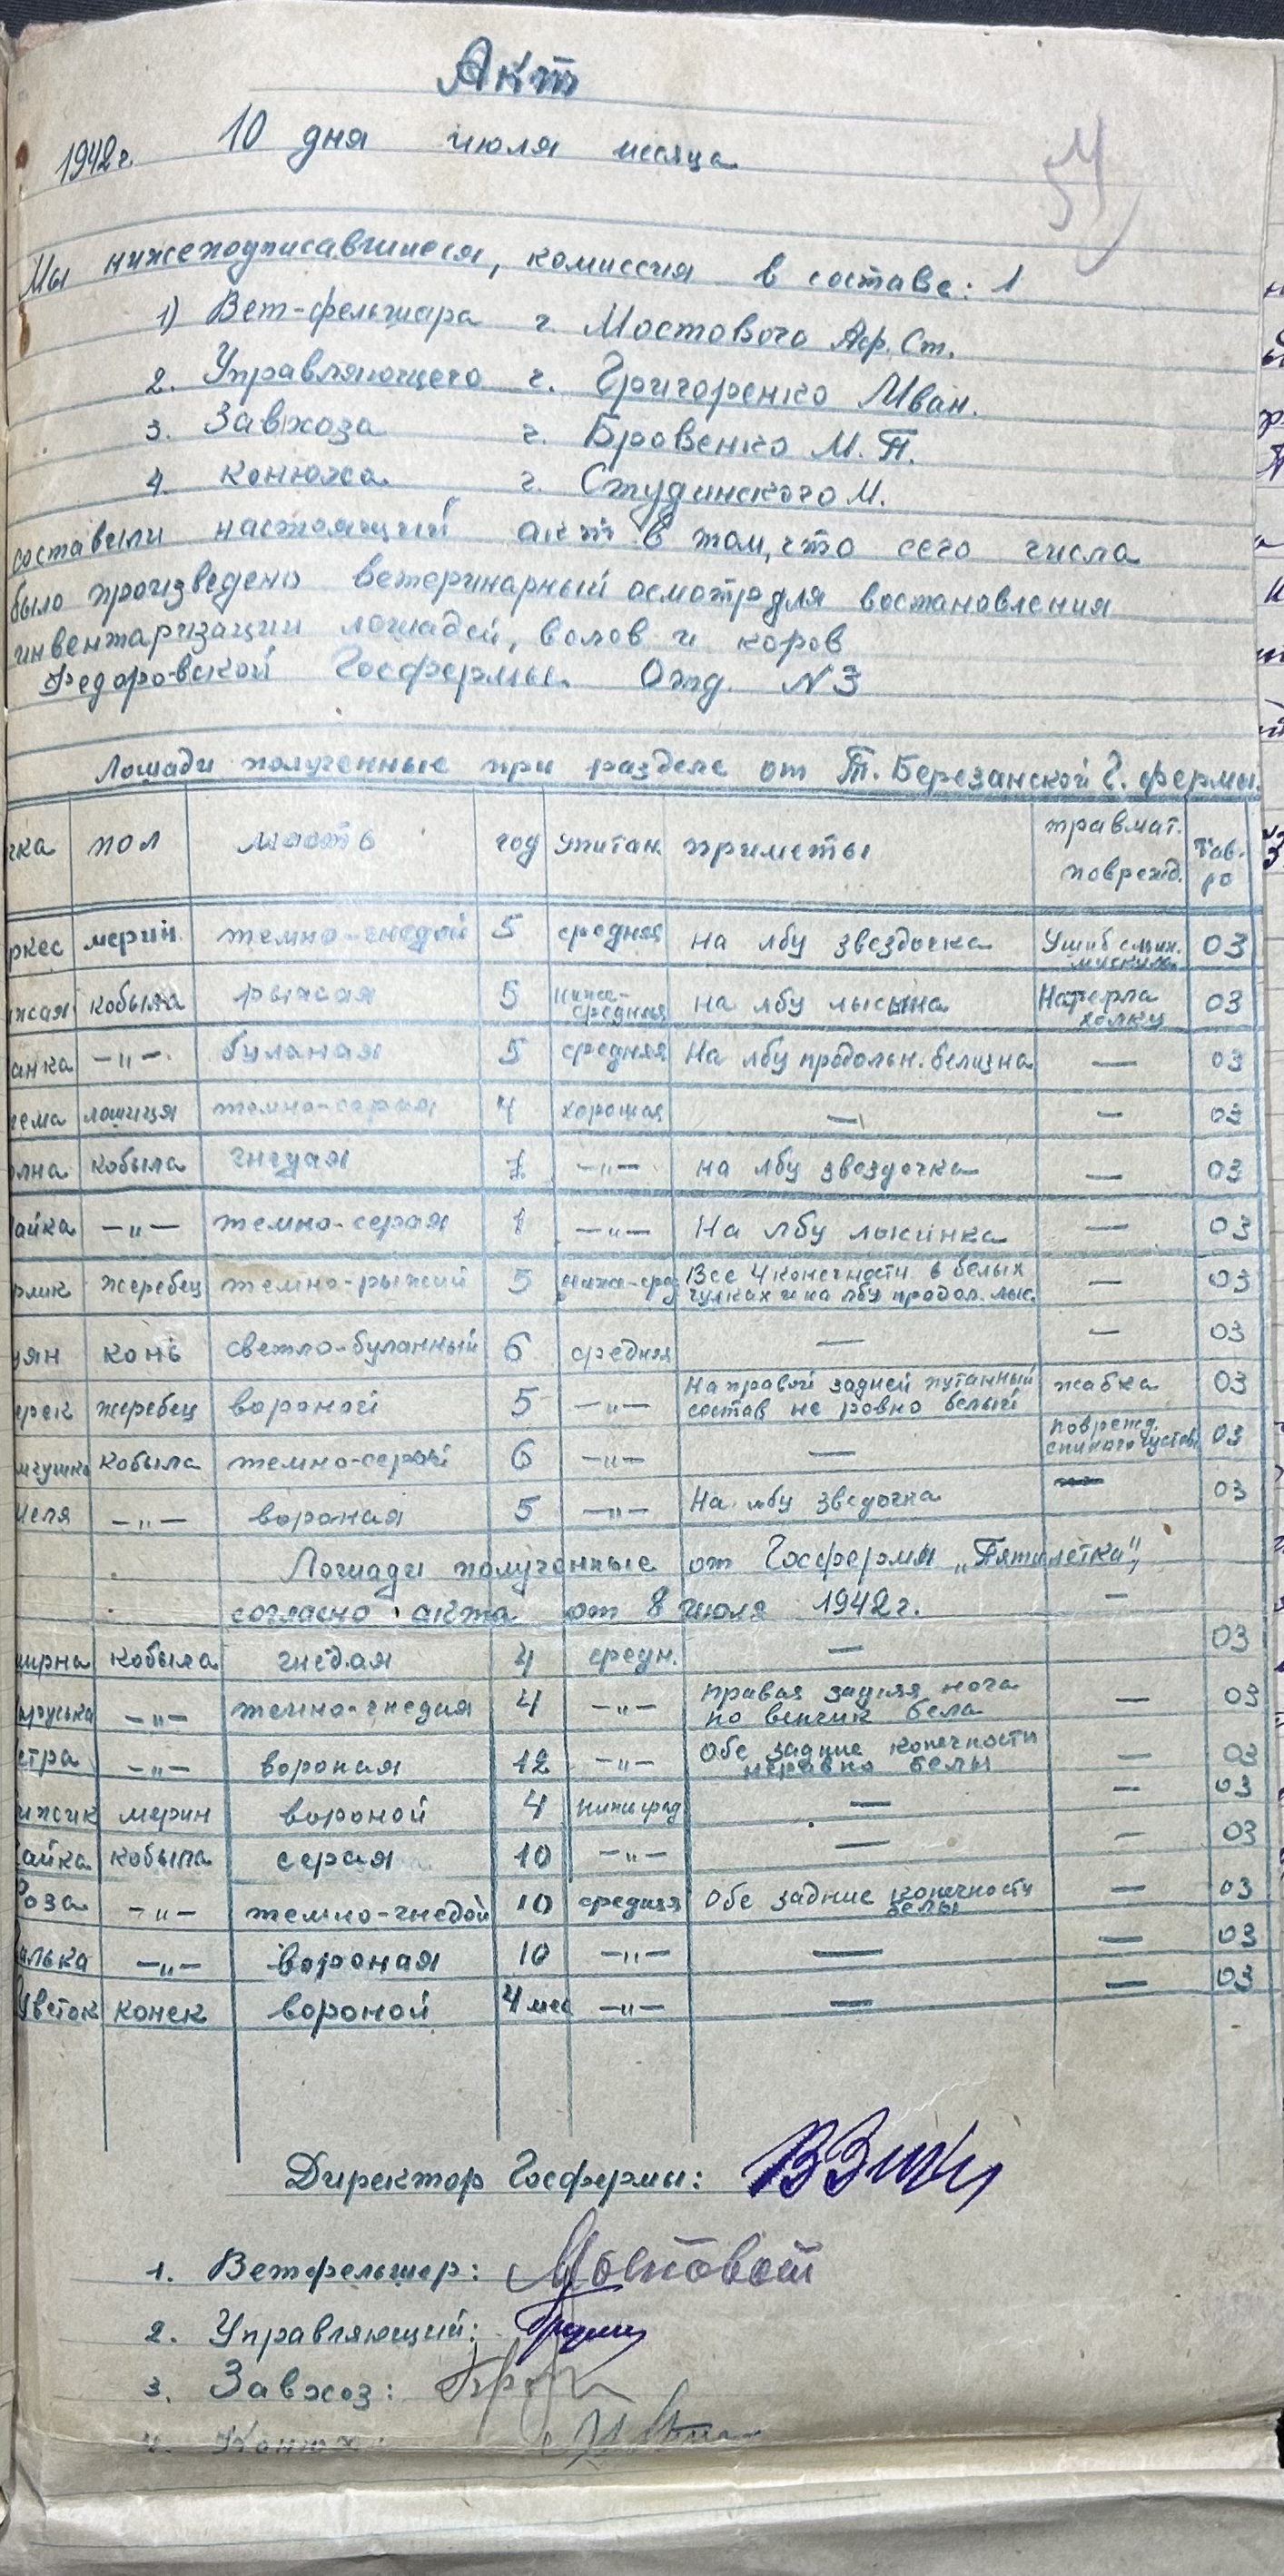 Акт
1942 г. 10 дня июля месяца
Мы нижеподписавшиеся, комиссия в составе: 1
1) Вет-фельшара г. Мостового Аф. Ст.
2. Управляющего г. Григоренко Иван.
3. Завхоза г. Бровенко М. П.
4. Конюха г. Студинского И.
составили настоящий акт в том, что сего числа
было произведено ветеринарный осмотр для востановления
инвентаризации лошадей, волов и коров
Федоровской Госфермы. Отд. N 3
Лошади полученные при разделе от Т. Березанской Г. фермы.
чка пол масть год упитан. приметы травмат. поврежд. Тав-ро
ркес мерин. темно-гнедой 5 средняя на лбу звездочка Ушиб спин. мускула 03
жая кобыла рыжая 5 ниже-средняя на лбу лысина Натерла холку 03
анка —"— буланая 5 средняя На лбу продольн. белизна — 03
ема лошиця темно-серая 4 хорошая — — 03
лна кобыла гнедая 1 —"— на лбу звездочка — 03
айка —"— темно-серая 1 —"— На лбу лысинка — 03
рлик жеребец темно-рыжий 5 ниже-сред Все 4 конечности в белых
чулках и на лбу продол. лыс. — 03
уян конь светло-буланный 6 средняя — — 03
ерек жеребец вороной 5 —"— На правой задней путанный
состав не ровно белый жабка 03
мгушка кобыла темно-серый 6 —"— — поврежд. спиного сустава 03
неля —"— вороная 5 —"— На лбу зведочка 03
Лошади полученные от Госфермы „Пятилетка",
согласно акта от 8 июля 1942 г. —
мирна кобыла гнедая 4 средн. — 03
аруська —"— темно-гнедая 4 —"— правая задняя нога
по венчик бела — 03
стра —"— вороная 12 —"— Обе задние конечности
неравно белы — 03
ижик мерин вороной 4 ниже сред — — 03
айка кобыла серая 10 —"— — — 03
Роза —"— темно-гнедой 10 средняя Обе задние конечности
белы — 03
алька —"— вороная 10 —"— — — 03
Цветок конек вороной 4 мес —"— — — 03
Директор Госфермы:
1. Ветфельшер: Мостовой
2. Управляющий:
3. Завхоз:
4. Конюх: